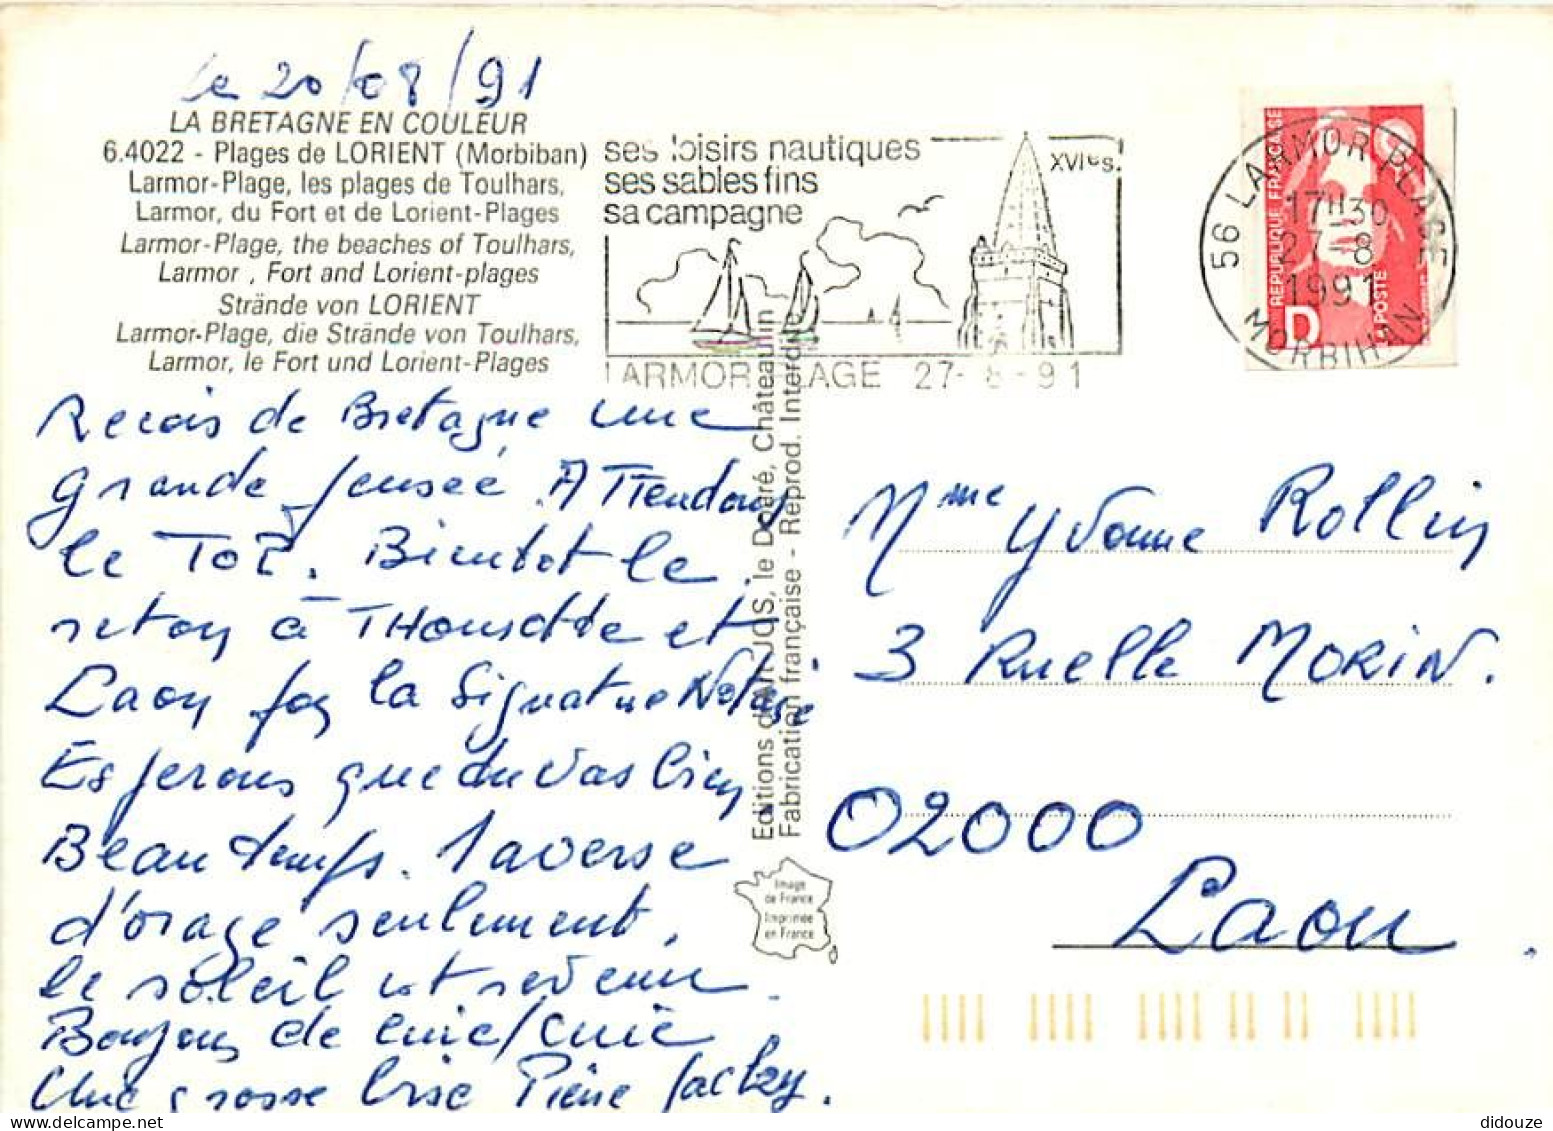 le 20/08/91
LA BRETAGNE EN COULEUR
6.4022 - Plages de LORIENT (Morbiban)
Larmor-Plage, les plages de Toulhars,
Larmor, du Fort et de Lorient-Plages
Larmor-Plage, the beaches of Toulhars,
Larmor , Fort and Lorient-plages
Strände von LORIENT
Larmor-Plage, die Strände von Toulhars,
Larmor, le Fort und Lorient-Plages
ses loisirs nautiques
ses sables fins
sa campagne
XVIe s.
LARMOR PLAGE 27-8-91
56 LARMOR PLAGE
17H30
27-8
1991
MORBIHAN
REPUBLIQUE FRANÇAISE
D
LA POSTE
Recois de Bretagne une
grande pensée. ATTendons
le TOE. Bientot le
retour à et
Laon pour la Signature Notaire
Esperons que tu vas bien
Beau temps. 1 averse
d'orage seulement,
le soleil est revenu.
Bonjour de cuic/cuic
Une grosse bise Pierre Jacky.
Editions d'Art JOS, le Doaré, Châteaulin
Fabrication française - Reprod. Interdite
Image
de France
Imprimée
en France
Mme Yvonne Rollin
3 Ruelle MORIN.
02000
Laon.
didouze